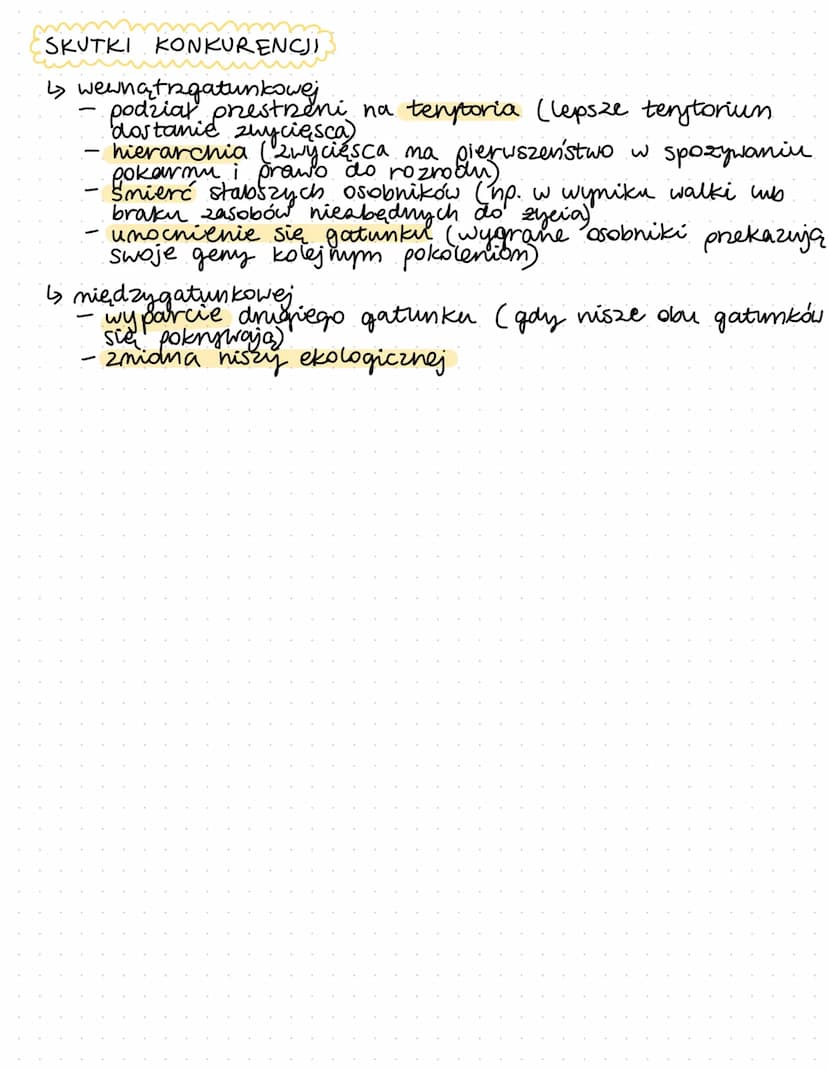 SKUTKI KONKURENCJI
↳ wewnątrzgatunkowej
- podział przestrzeni na terytoria (lepsze terytorium
dostanie zwycięsca)
- hierarchia (zwycięsca ma pierwszeństwo w spożywaniu
pokarmu i prawo do rozrodu)
- śmierć słabszych osobników (np. w wyniku walki lub
braku zasobów niezbędnych do życia)
- umocnienie się gatunku (wygrane osobniki przekazują
swoje geny kolejnym pokoleniom)
↳ międzygatunkowej
- wyparcie drugiego gatunku (gdy nisze obu gatunków
się pokrywają)
- zmiana niszy ekologicznej